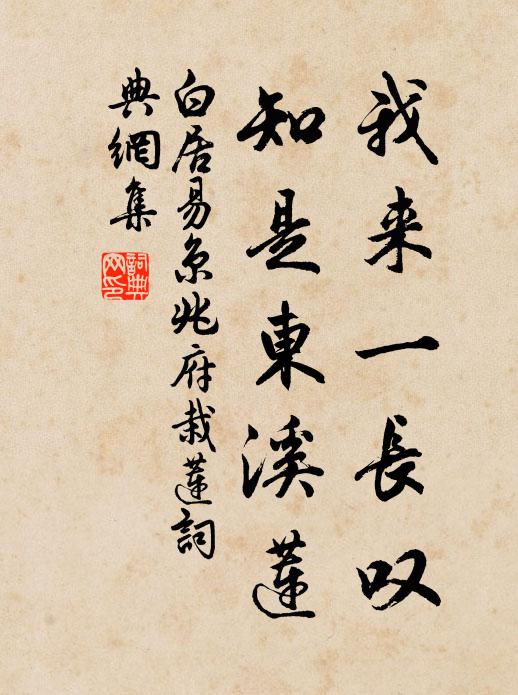 我来一長叹
知是東溪蓮
白居易京兆府栽蓮詞
典網集
詞典网印